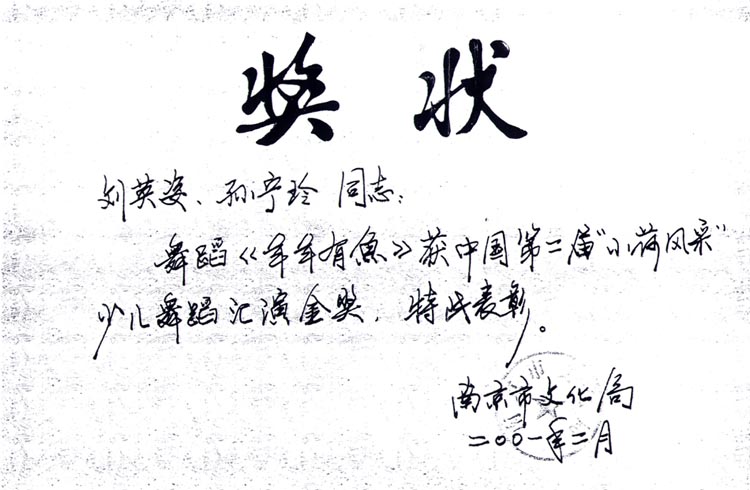 奖状
刘英姿、孙宁玲 同志：
舞蹈《年年有鱼》获中国第二届“小荷风采”
少儿舞蹈汇演金奖，特此表彰。
南京市文化局
二〇〇一年二月